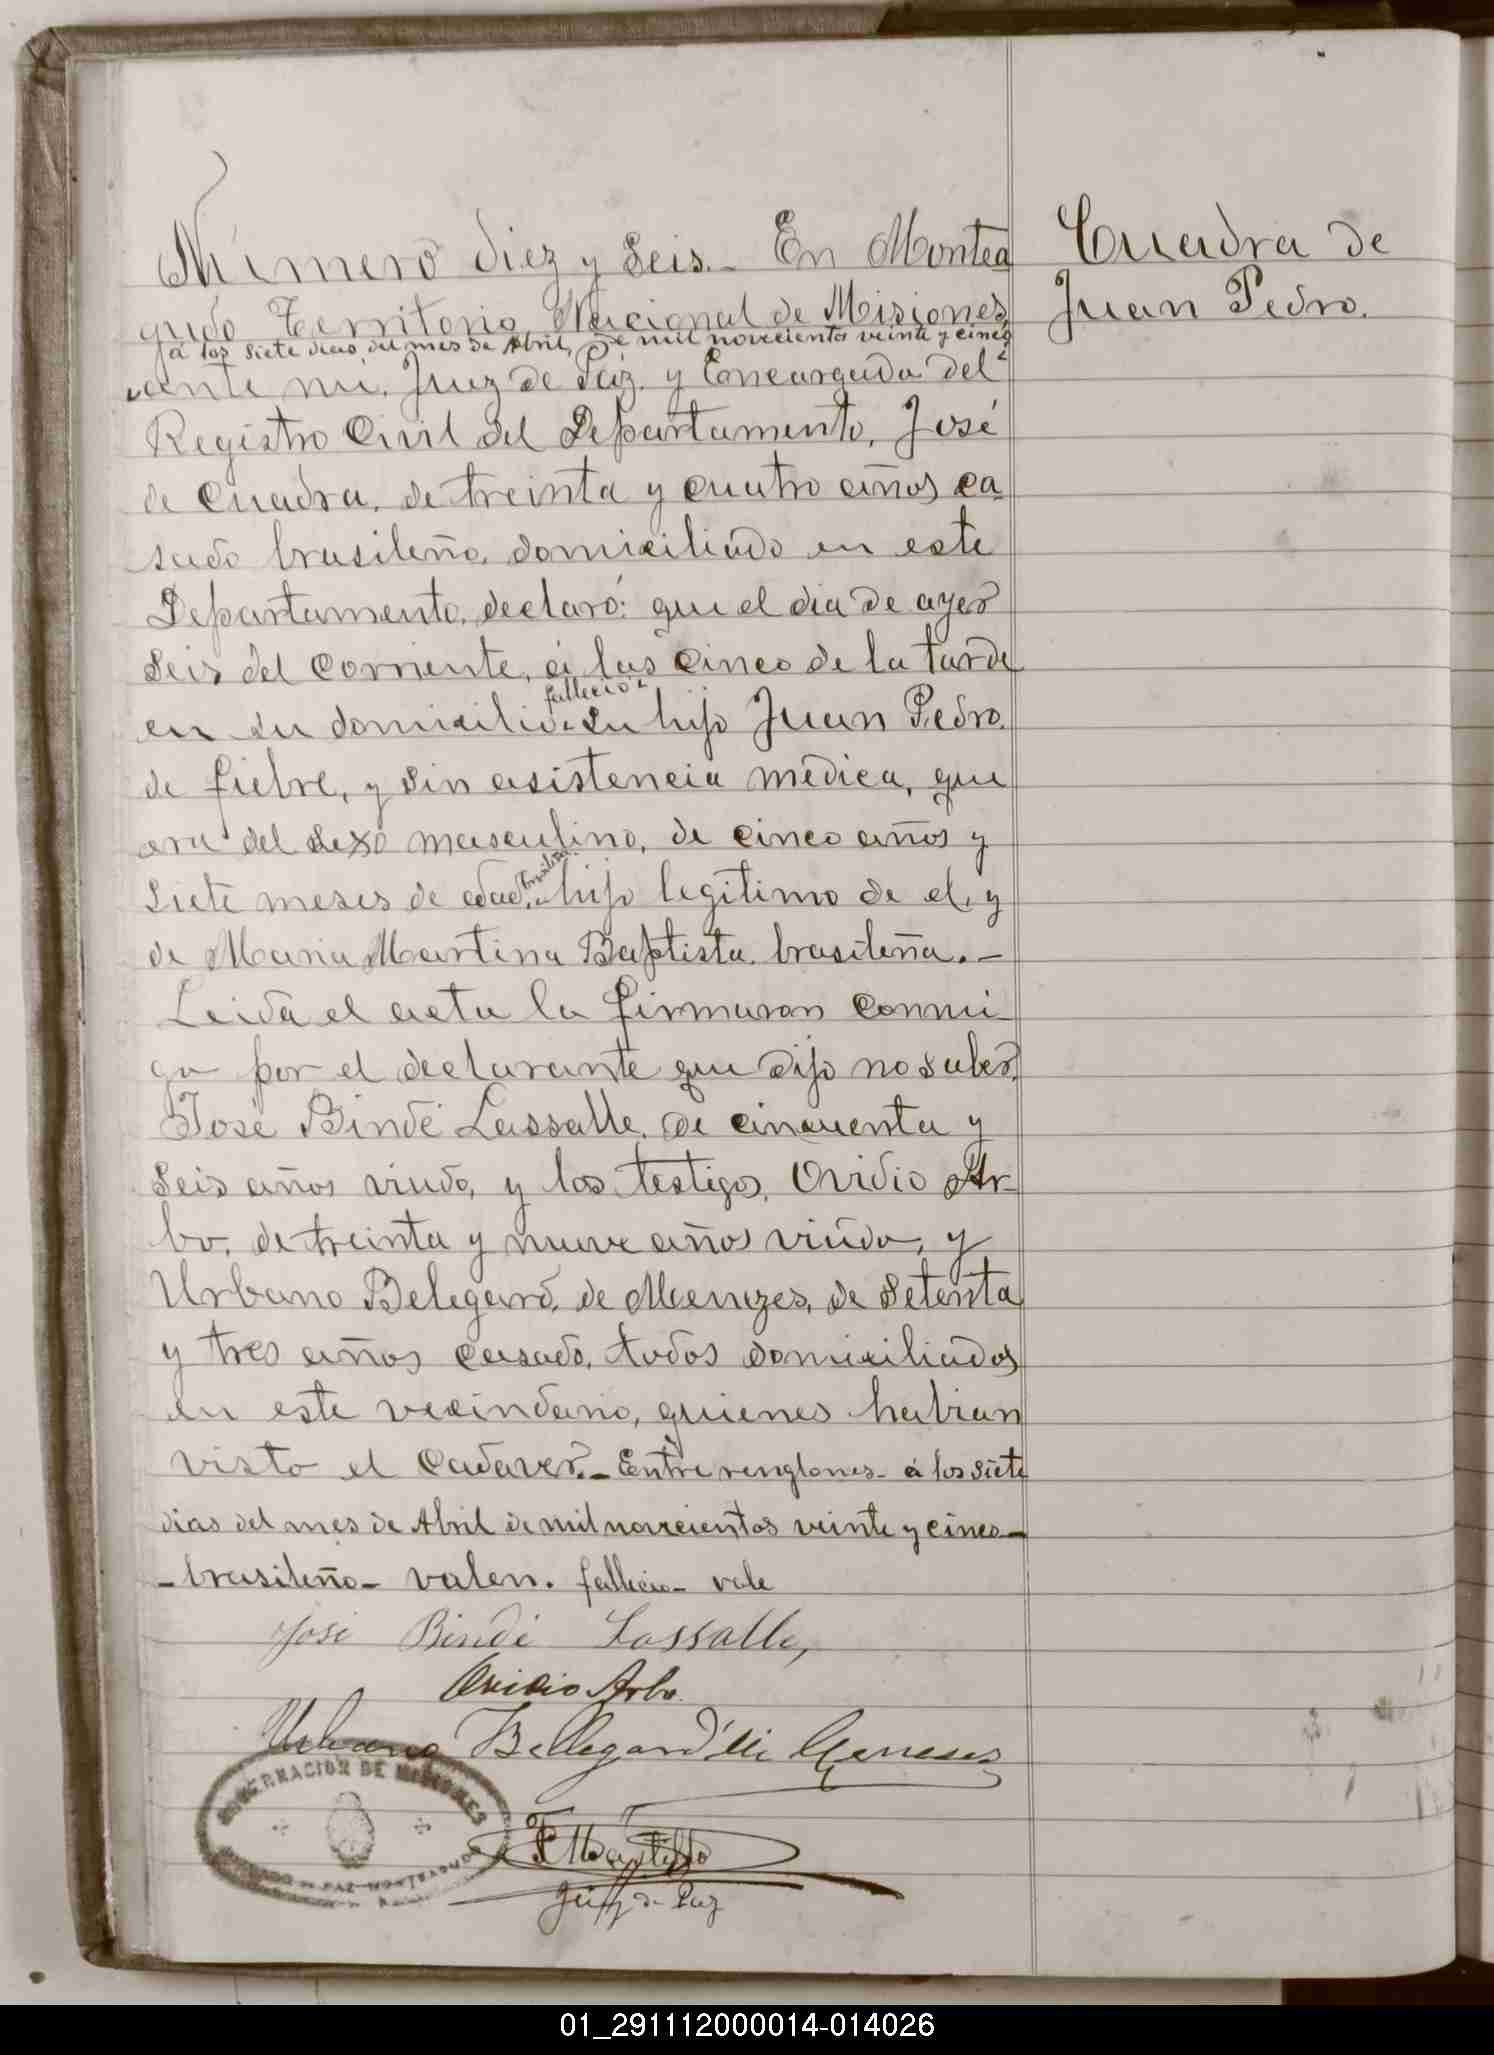 Número diez y seis.- En Montea
gudo Territorio Nacional de Misiones,
a los siete dias del mes de Abril, de mil novecientos veinte y cinco
ante mi, Juez de Paz, y Encargado del
Registro Civil del Departamento, José
de Cuadra, de treinta y cuatro años ca
sado brasileño, domiciliado en este
Departamento, declaró: que el dia de ayer
seis del corriente, á las cinco de la tarde
falleció
en su domicilio su hijo Juan Pedro,
de fiebre, y sin asistencia médica, que
era del sexo masculino, de cinco años y
brasileño
siete meses de edad, hijo legítimo de el, y
de Maria Martina Baptista, brasileña.-
Leida el acta la firmaron conmi
go por el declarante que dijo no saber,
José Bindé Lassalle, de cincuenta y
seis años viudo, y los testigos, Ovidio Ar-
bo, de treinta y nueve años viudo, y
Urbano Belegard, de Menezes, de setenta
y tres años casado, todos domiciliados
en este vecindario, quienes habian
visto el cadaver.- Entre renglones- á los siete
dias del mes de Abril de mil novecientos veinte y cinco-
-brasileño- valen. fallecio- vale
José Bindé Lassalle,
Ovidio Arbo
Urbano Bellegard de Meneses
Juez de Paz
GOBERNACION DE MISIONES
JUZGADO DE PAZ-MONTEAGUDO
Cuadra de
Juan Pedro.
01_291112000014-014026